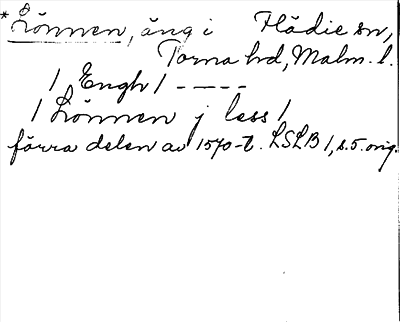 *Lönnen, äng i Flädie sn,
Torna hd, Malm. l.
/ Engh / - - - -
/ Lönnen j less /
förra delen av 1570-t. LSLB 1, s. 5. orig.